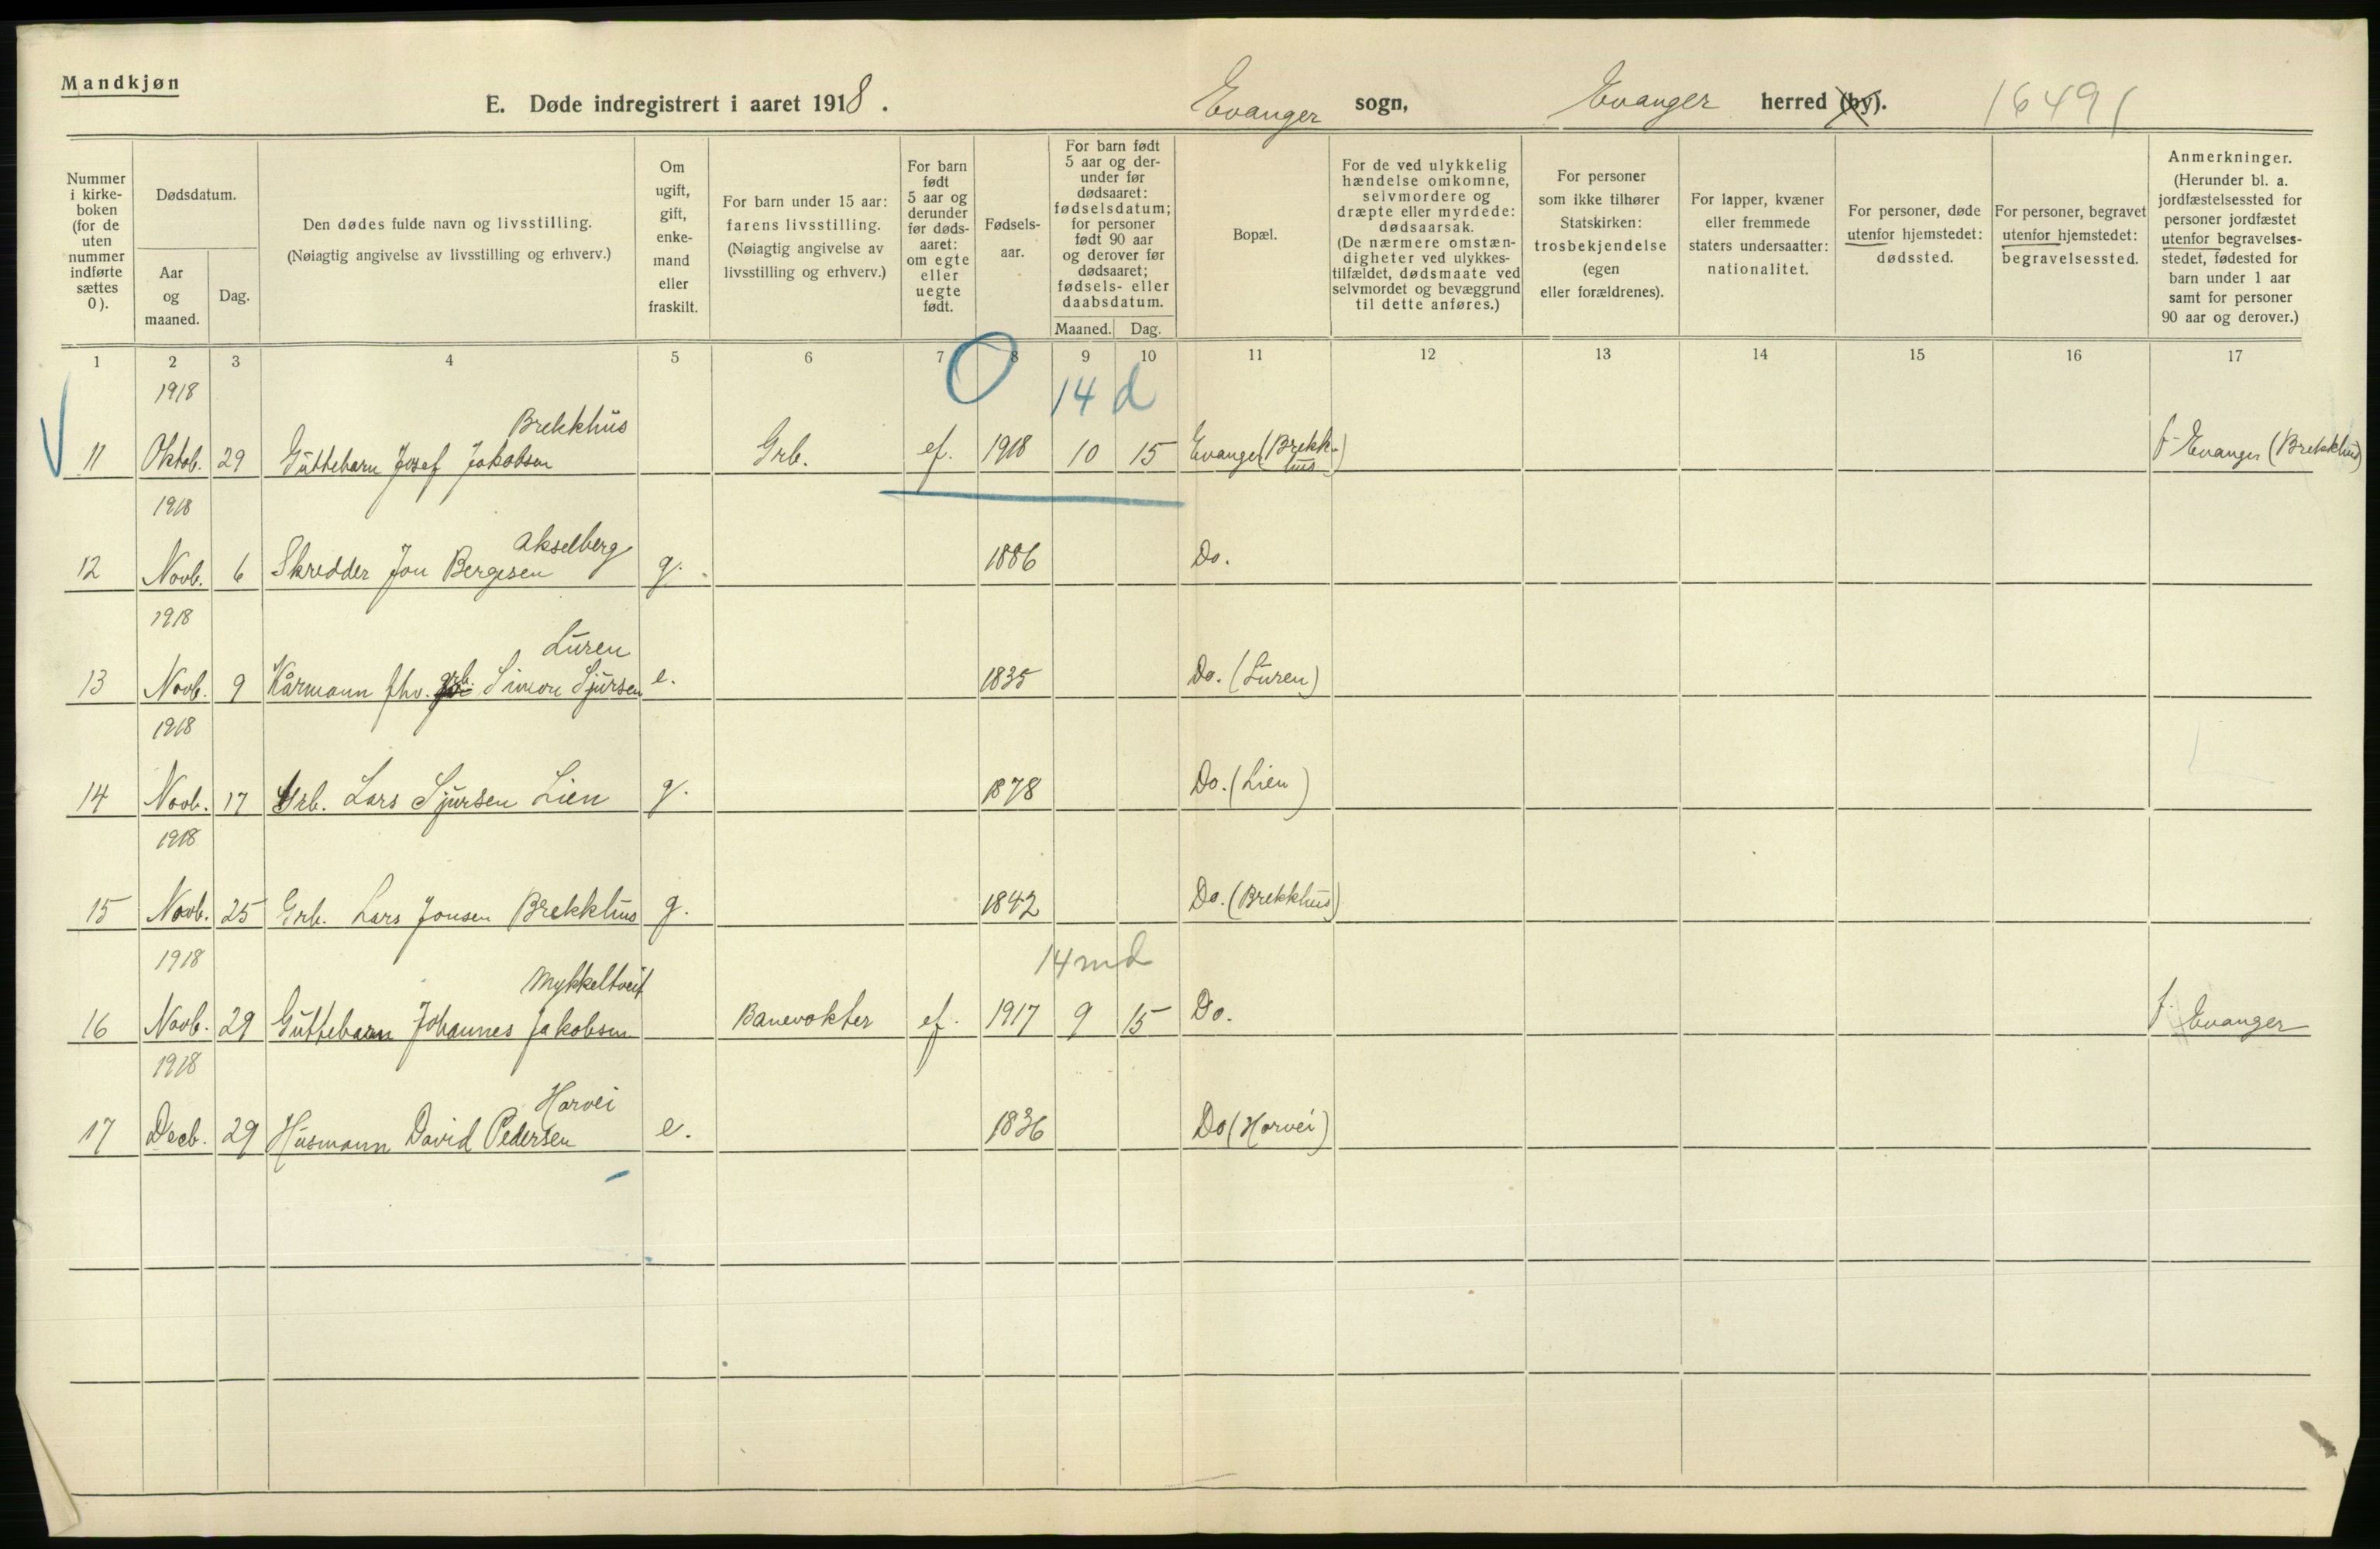 Mandkjøn
E. Døde indregistrert i aaret 1918.
Evanger sogn, Evanger herred (by). 16491
Nummer i kirke-boken (for de uten nummer indførte sættes 0).
Dødsdatum.
Aar og maaned.
Dag.
Den dødes fulde navn og livsstilling.
(Nøiagtig angivelse av livsstilling og erhverv.)
Om ugift, gift, enke-mand eller fraskilt.
For barn under 15 aar: farens livsstilling.
(Nøiagtig angivelse av livsstilling og erhverv.)
For barn født 5 aar og derunder før døds-aaret: om egte eller uegte født.
Fødsels-aar.
For barn født 5 aar og der-under før dødsaaret: fødselsdatum; for personer født 90 aar og derover før dødsaaret; fødsels- eller daabsdatum.
Maaned. Dag.
Bopæl.
For de ved ulykkelig hændelse omkomne, selvmordere og dræpte eller myrdede: dødsaarsak.
(De nærmere omstæn-digheter ved ulykkes-tilfældet, dødsmaate ved selvmordet og bevæggrund til dette anføres.)
For personer som ikke tilhører Statskirken: trosbekjendelse (egen eller forældrenes).
For lapper, kvæner eller fremmede staters undersaatter: nationalitet.
For personer, døde utenfor hjemstedet: dødssted.
For personer, begravet utenfor hjemstedet: begravelsessted.
Anmerkninger.
(Herunder bl. a. jordfæstelsessted for personer jordfæstet utenfor begravelses-stedet, fødested for barn under 1 aar samt for personer 90 aar og derover.)
1 2 3 4 5 6 7 8 9 10 11 12 13 14 15 16 17
1918 0 14 d
Brekkhus
11 Oktob. 29 Guttebarn Josef Jakobsen Grb. ef. 1918 10 15 Evanger (Brekk-hus) f. Evanger (Brekkhus)
1918
Akselberg
12 Novb. 6 Skredder Jon Bergesen g. 1886 Do.
1918
Luren
13 Novb. 9 Kårmann fhv. grb. Simon Sjursen e. 1835 Do. (Luren)
1918
14 Novb. 17 Grb. Lars Sjursen Lien g. 1878 Do. (Lien)
1918
15 Novb. 25 Grb. Lars Jonsen Brekkhus g. 1842 Do. (Brekkhus)
1918 14 md
Mykkeltveit
16 Novb. 29 Guttebarn Johannes Jakobsen Banevokter ef. 1917 9 15 Do. f. Evanger
1918
Horvei
17 Decb. 29 Husmann David Pedersen e. 1836 Do (Horvei)